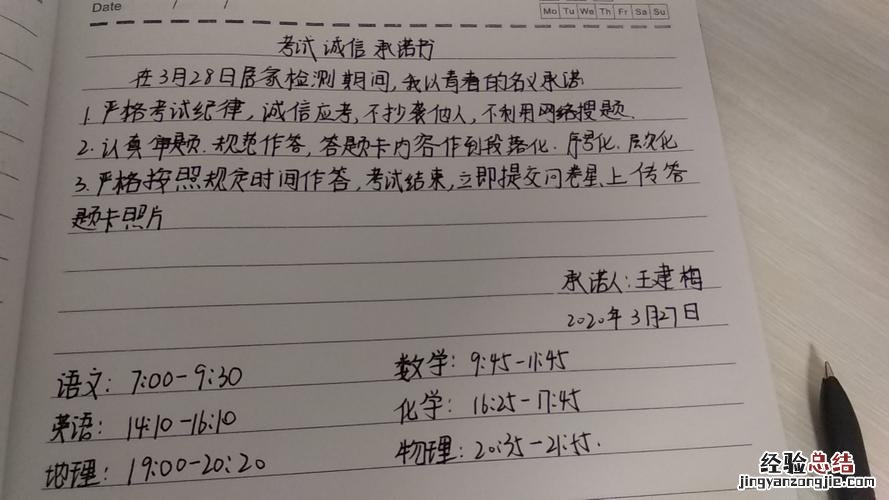 Date / /
Mo Tu We Th Fr Sa Su
考试诚信承诺书
在3月28日居家检测期间,我以青春的名义承诺
1.严格考试纪律,诚信应考,不抄袭他人,不利用网络搜题.
2.认真审题.规范作答,答题卡内容作到段落化.序号化.层次化
3.严格按照规定时间作答,考试结束,立即提交问卷星上传答
题卡照片
承诺人:王建梅
2020年3月27日
语文: 7:00-9:30 数学: 9:45-11:45
英语: 14:10-16:10 化学: 16:25-17:45
地理: 19:00-20:20 物理: 20:35-21:55.
经验总结
jingyanzongjie.com